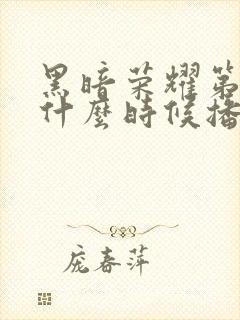 黑暗荣耀第
什麼時候播
庞春萍